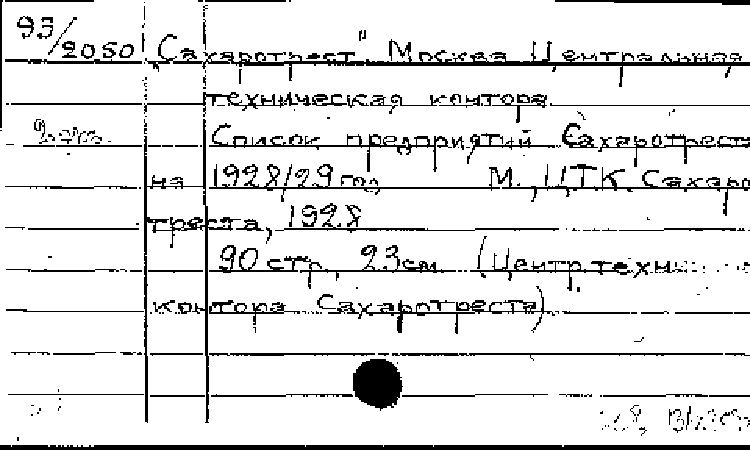 93/2050 "Сахаротрест" Москва Центральная
техническая контора.
Список предприятий Сахаротреста
на 1928/29 год М., Ц.Т.К. Сахаро
треста, 1928
90 стр., 23 см. (Центр. технич
контора Сахаротреста).